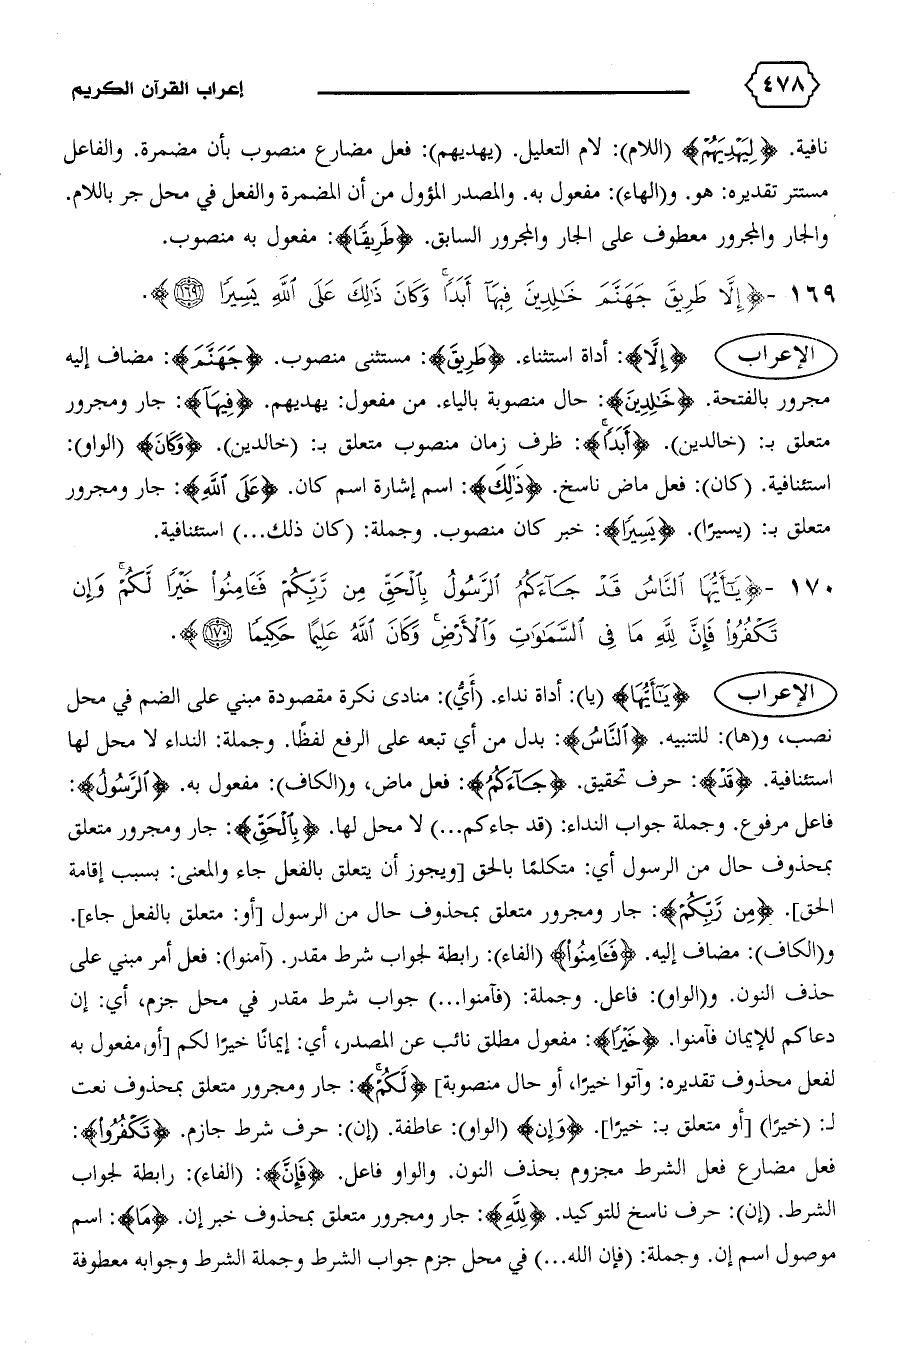 ٤٧٨
إعراب القرآن الكريم
نافية. ﴿لِيَهْدِيَهُمْ﴾ (اللام): لام التعليل. (يهديهم): فعل مضارع منصوب بأن مضمرة. والفاعل
مستتر تقديره: هو. و(الهاء): مفعول به. والمصدر المؤول من أن المضمرة والفعل في محل جر باللام.
والجار والمجرور معطوف على الجار والمجرور السابق. ﴿طَرِيقًا﴾: مفعول به منصوب.
١٦٩ - ﴿إِلَّا طَرِيقَ جَهَنَّمَ خَٰلِدِينَ فِيهَآ أَبَدًاۚ وَكَانَ ذَٰلِكَ عَلَى ٱللَّهِ يَسِيرًا ١٦٩﴾.
الإعراب ﴿إِلَّا﴾: أداة استثناء. ﴿طَرِيقَ﴾: مستثنى منصوب. ﴿جَهَنَّمَ﴾: مضاف إليه
مجرور بالفتحة. ﴿خَٰلِدِينَ﴾: حال منصوبة بالياء. من مفعول: يهديهم. ﴿فِيهَآ﴾: جار ومجرور
متعلق بـ: (خالدين). ﴿أَبَدًاۚ﴾: ظرف زمان منصوب متعلق بـ: (خالدين). ﴿وَكَانَ﴾ (الواو):
استئنافية. (كان): فعل ماض ناسخ. ﴿ذَٰلِكَ﴾: اسم إشارة اسم كان. ﴿عَلَى ٱللَّهِ﴾: جار ومجرور
متعلق بـ: (يسيرًا). ﴿يَسِيرًا﴾: خبر كان منصوب. وجملة: (كان ذلك...) استئنافية.
١٧٠ - ﴿يَٰٓأَيُّهَا ٱلنَّاسُ قَدْ جَآءَكُمُ ٱلرَّسُولُ بِٱلْحَقِّ مِن رَّبِّكُمْ فَـَٔامِنُوا۟ خَيْرًا لَّكُمْۚ وَإِن
تَكْفُرُوا۟ فَإِنَّ لِلَّهِ مَا فِى ٱلسَّمَٰوَٰتِ وَٱلْأَرْضِۚ وَكَانَ ٱللَّهُ عَلِيمًا حَكِيمًا ١٧٠﴾.
الإعراب ﴿يَٰٓأَيُّهَا﴾ (يا): أداة نداء. (أَيُّ): منادى نكرة مقصودة مبني على الضم في محل
نصب، و(ها): للتنبيه. ﴿ٱلنَّاسُ﴾: بدل من أي تبعه على الرفع لفظًا. وجملة: النداء لا محل لها
استئنافية. ﴿قَدْ﴾: حرف تحقيق. ﴿جَآءَكُمُ﴾: فعل ماض، و(الكاف): مفعول به. ﴿ٱلرَّسُولُ﴾:
فاعل مرفوع. وجملة جواب النداء: (قد جاءكم...) لا محل لها. ﴿بِٱلْحَقِّ﴾: جار ومجرور متعلق
بمحذوف حال من الرسول أي: متكلمًا بالحق [ويجوز أن يتعلق بالفعل جاء والمعنى: بسبب إقامة
الحق]. ﴿مِن رَّبِّكُمْ﴾: جار ومجرور متعلق بمحذوف حال من الرسول [أو: متعلق بالفعل جاء].
و(الكاف): مضاف إليه. ﴿فَـَٔامِنُوا۟﴾ (الفاء): رابطة لجواب شرط مقدر. (آمنوا): فعل أمر مبني على
حذف النون. و(الواو): فاعل. وجملة: (فآمنوا...) جواب شرط مقدر في محل جزم، أي: إن
دعاكم للإيمان فآمنوا. ﴿خَيْرًا﴾: مفعول مطلق نائب عن المصدر، أي: إيمانًا خيرًا لكم [أو مفعول به
لفعل محذوف تقديره: وآتوا خيرًا، أو حال منصوبة] ﴿لَّكُمْۚ﴾: جار ومجرور متعلق بمحذوف نعت
لـ: (خيرًا) [أو متعلق بـ: خيرًا]. ﴿وَإِن﴾ (الواو): عاطفة. (إن): حرف شرط جازم. ﴿تَكْفُرُوا۟﴾:
فعل مضارع فعل الشرط مجزوم بحذف النون. والواو فاعل. ﴿فَإِنَّ﴾: (الفاء): رابطة لجواب
الشرط. (إن): حرف ناسخ للتوكيد. ﴿لِلَّهِ﴾: جار ومجرور متعلق بمحذوف خبر إن. ﴿مَا﴾: اسم
موصول اسم إن. وجملة: (فإن الله...) في محل جزم جواب الشرط وجملة الشرط وجوابه معطوفة